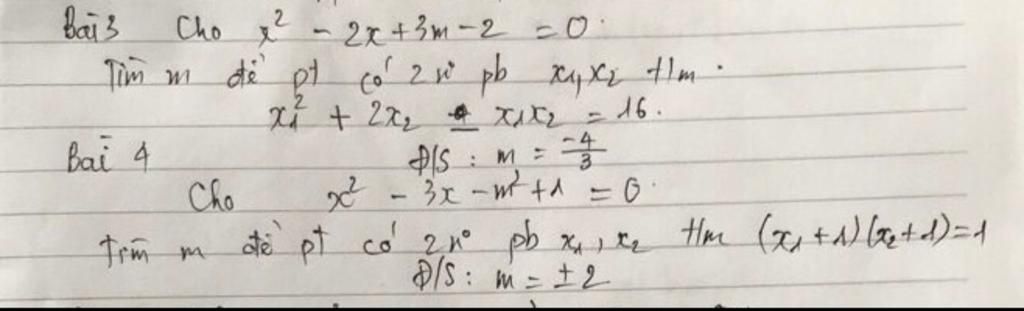 Bài 3 Cho x² - 2x + 3m - 2 = 0.
Tìm m để pt có 2 n⁰ pb x₁, x₂ t/m.
x₁² + 2x₂ + x₁x₂ = 16.
Bài 4 Đ/S: m = -4/3
Cho x² - 3x - m² + 1 = 0.
Tìm m để pt có 2 n⁰ pb x₁, x₂ t/m (x₁ + 1)(x₂ + 1) = 1
Đ/S: m = ± 2